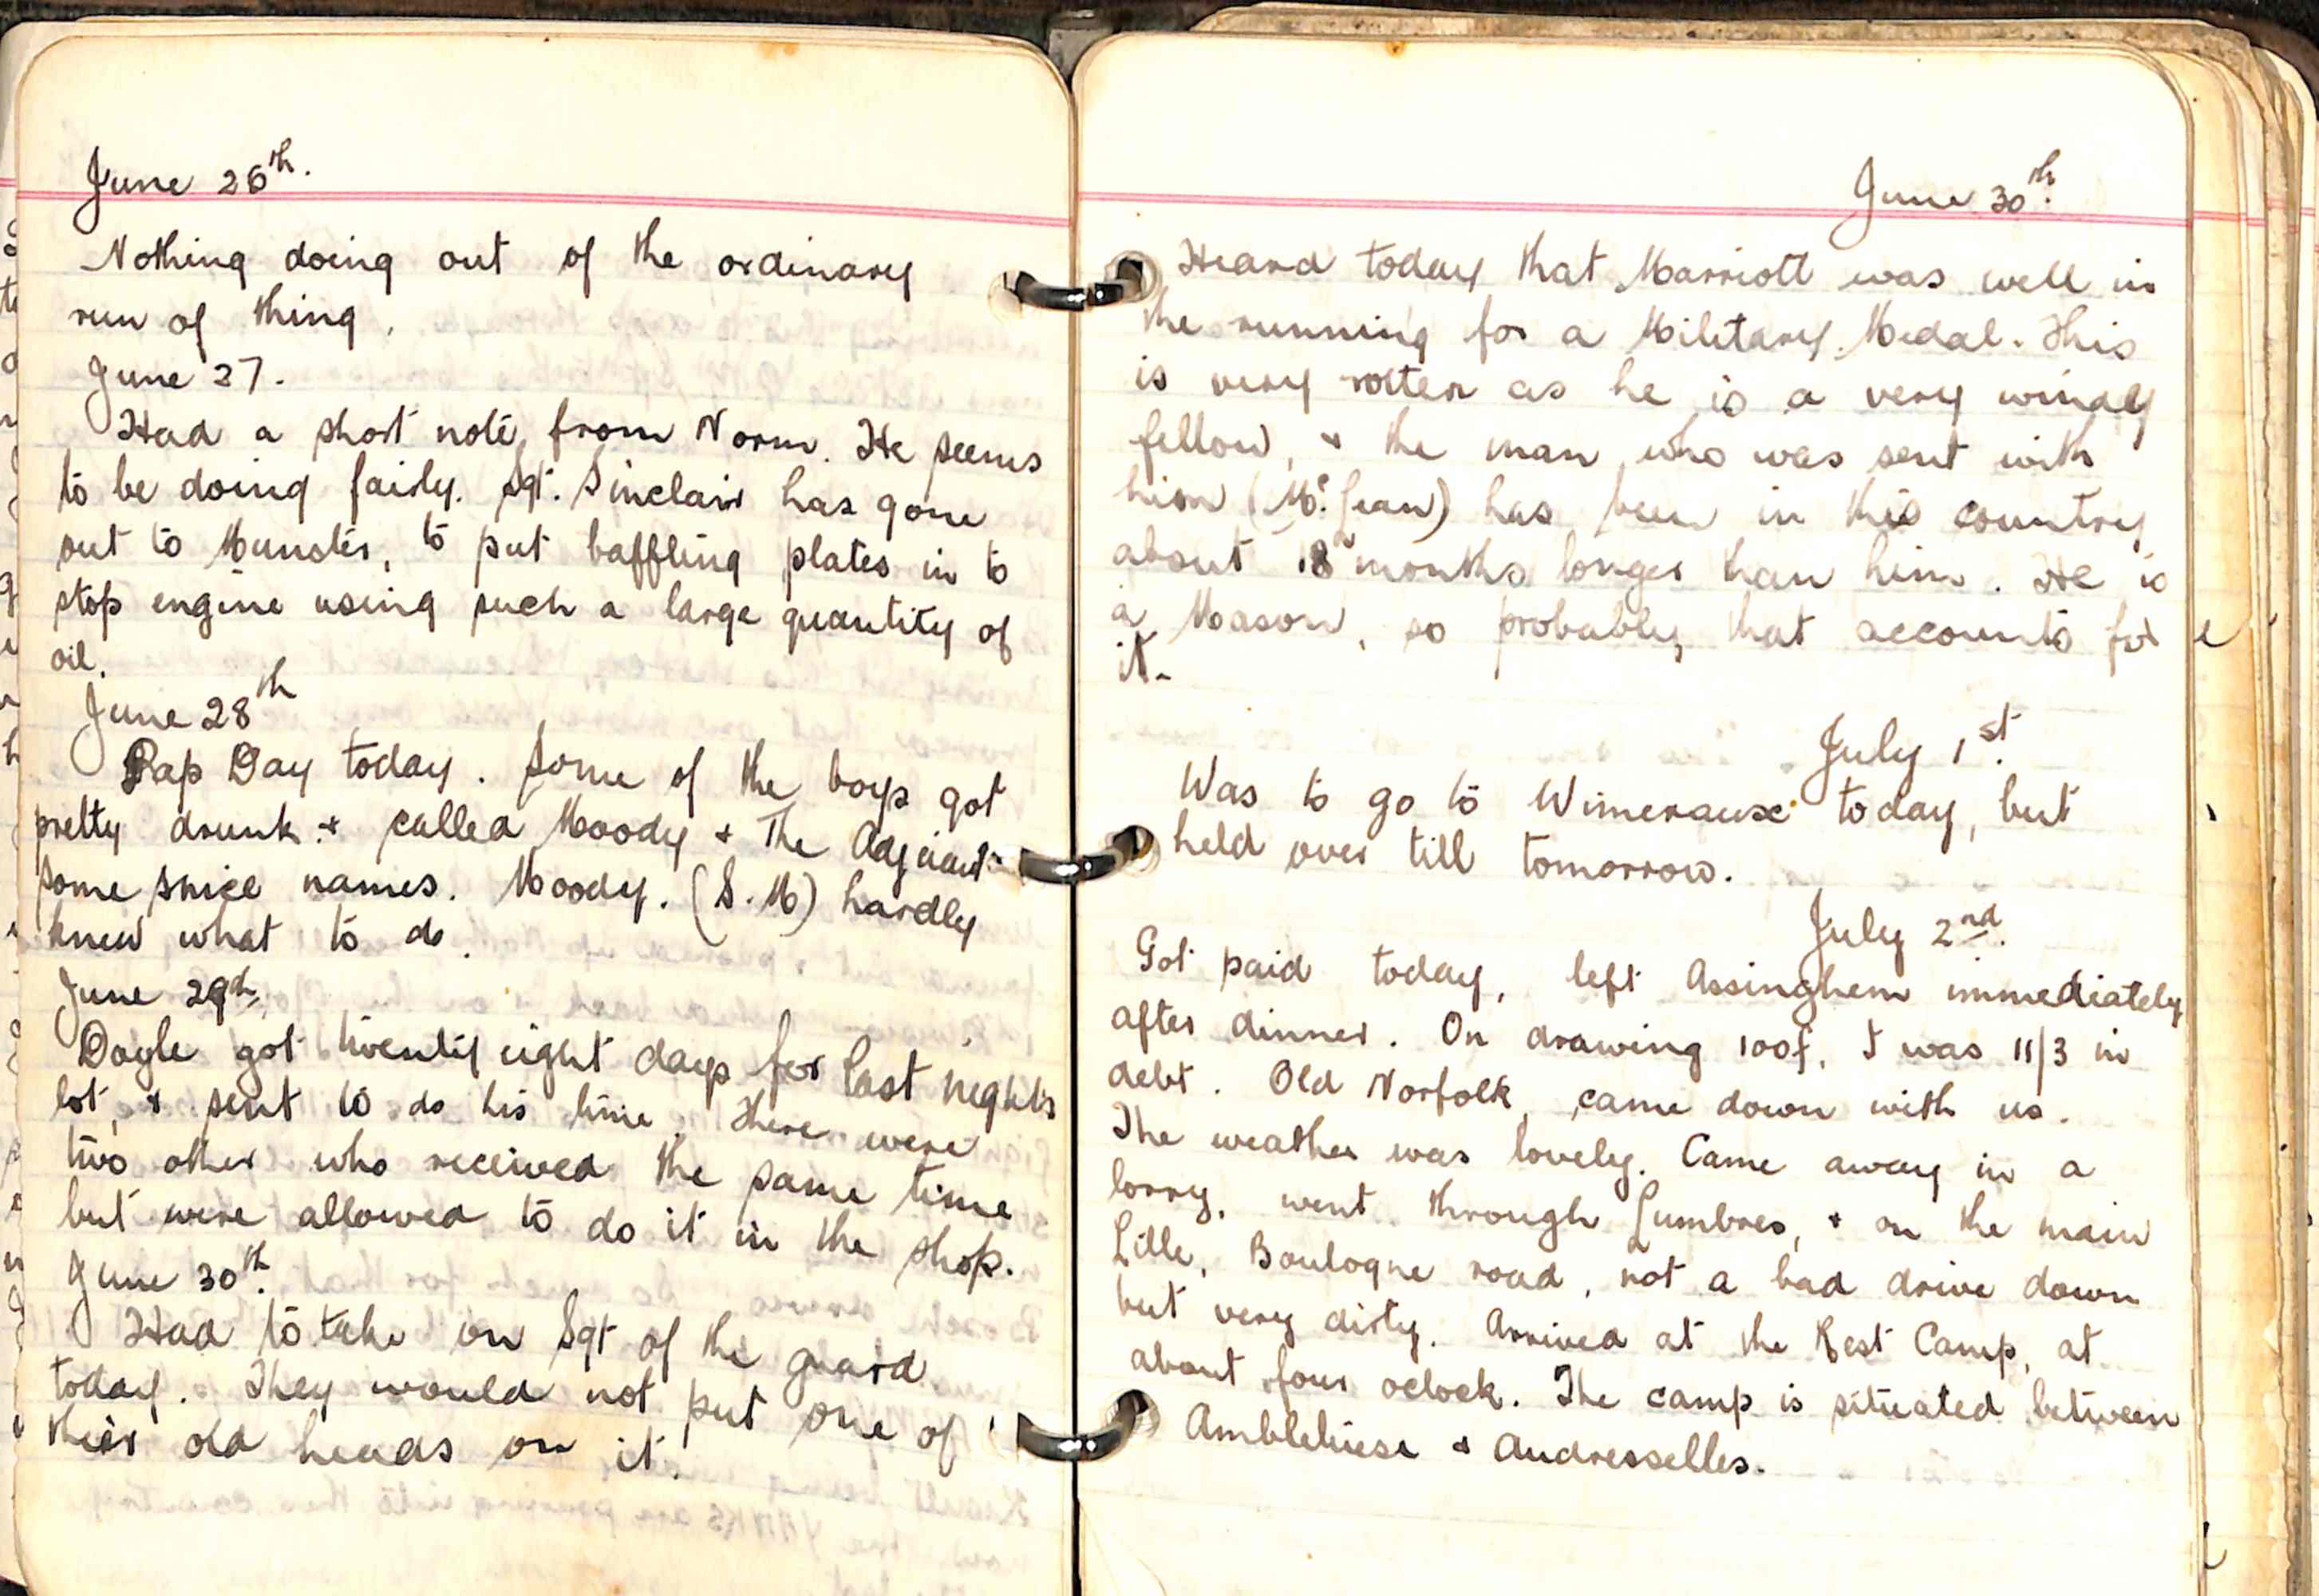 June 26th.
Nothing doing out of the ordinary
run of thing.
June 27.
Had a short note, from Norm. He seems
to be doing fairly. Sgt. Sinclair has gone
out to Munster, to put baffling plates in to
stop engine using such a large quantity of
oil.
June 28th
Pap Day today. Some of the boys got
pretty drunk & called Moody & The Adjutant
some nice names. Moody. (S.M) hardly
knew what to do.
June 29th
Doyle got twenty eight days for last night's
lot, & sent to do his time. There were
two other who received the same time
but were allowed to do it in the shop.
June 30th.
Had to take on Sgt of the guard
today. They would not put one of
their old heads on it.
June 30th.
Heard today that Marriott was well in
the running for a Military Medal. This
is very rotten as he is a very windy
fellow, & the man who was sent with
him (Mc. Lean) has been in this country
about 18 months longer than him. He is
a Mason, so probably that accounts for
it-
July 1st.
Was to go to Wimerause today, but
held over till tomorrow.
July 2nd.
Got paid today, left Assinghem immediately
after dinner. On drawing 100f. I was 11/3 in
debt. Old Norfolk, came down with us.
The weather was lovely. Came away in a
lorry, went through Lumbres, & on the main
Lille, Boulogne road, not a bad drive down
but very dirty. Arrived at the Rest Camp, at
about four oclock. The camp is situated between
Ambleteuse & Audresselles.